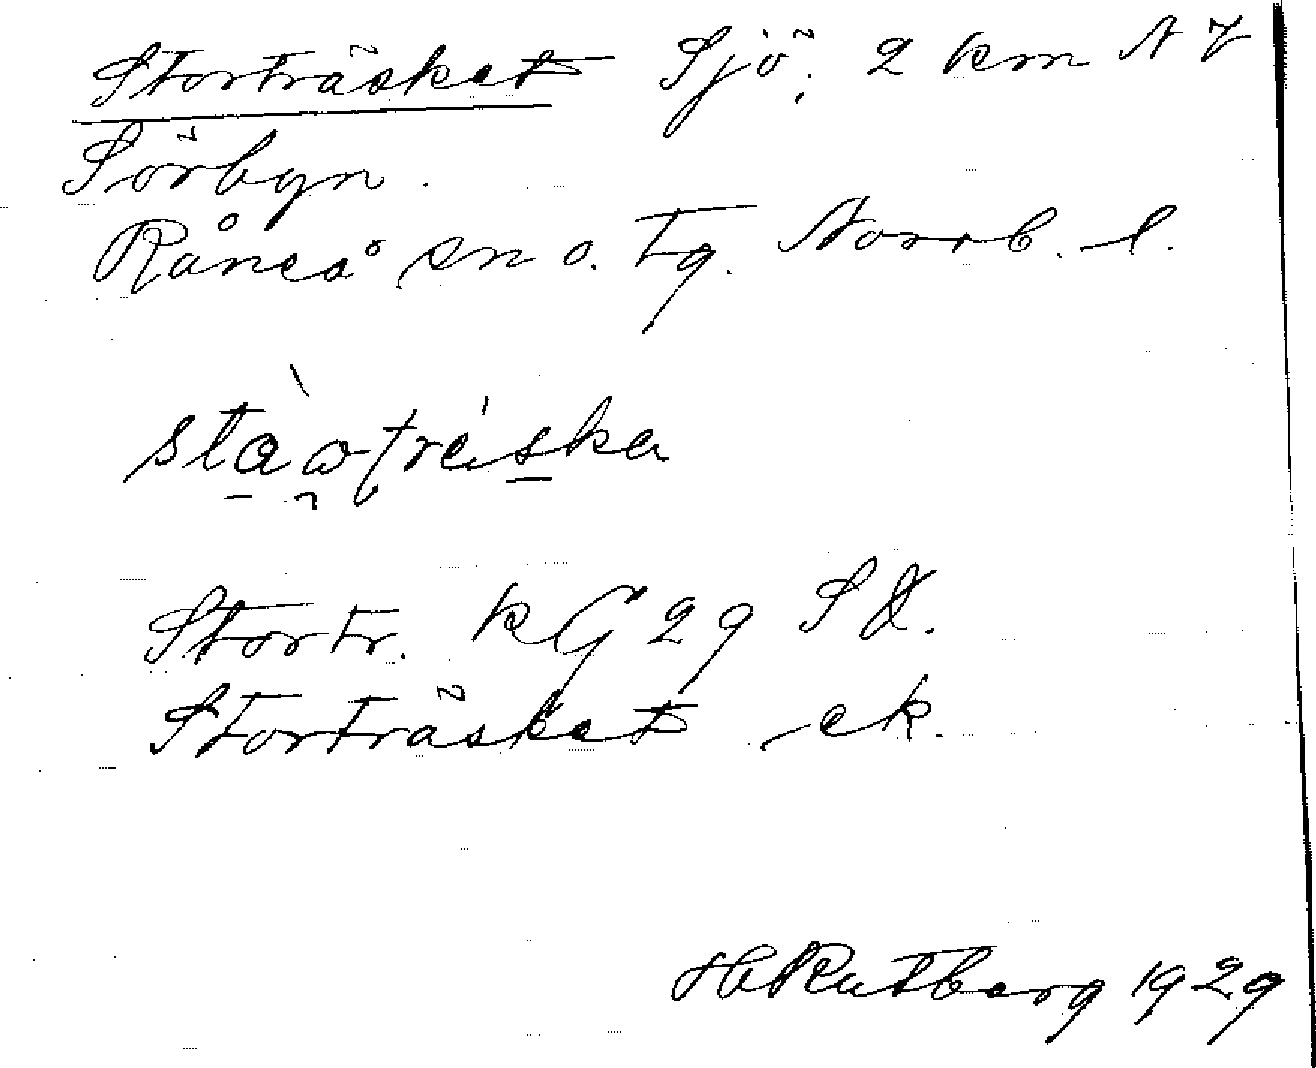 Storträsket Sjö, 2 km N
Sörbyn.
Råneå sn o. tg. Norrb. l.
Stortr. KG 29 SX.
Storträsket ek.
H Rutberg 1929